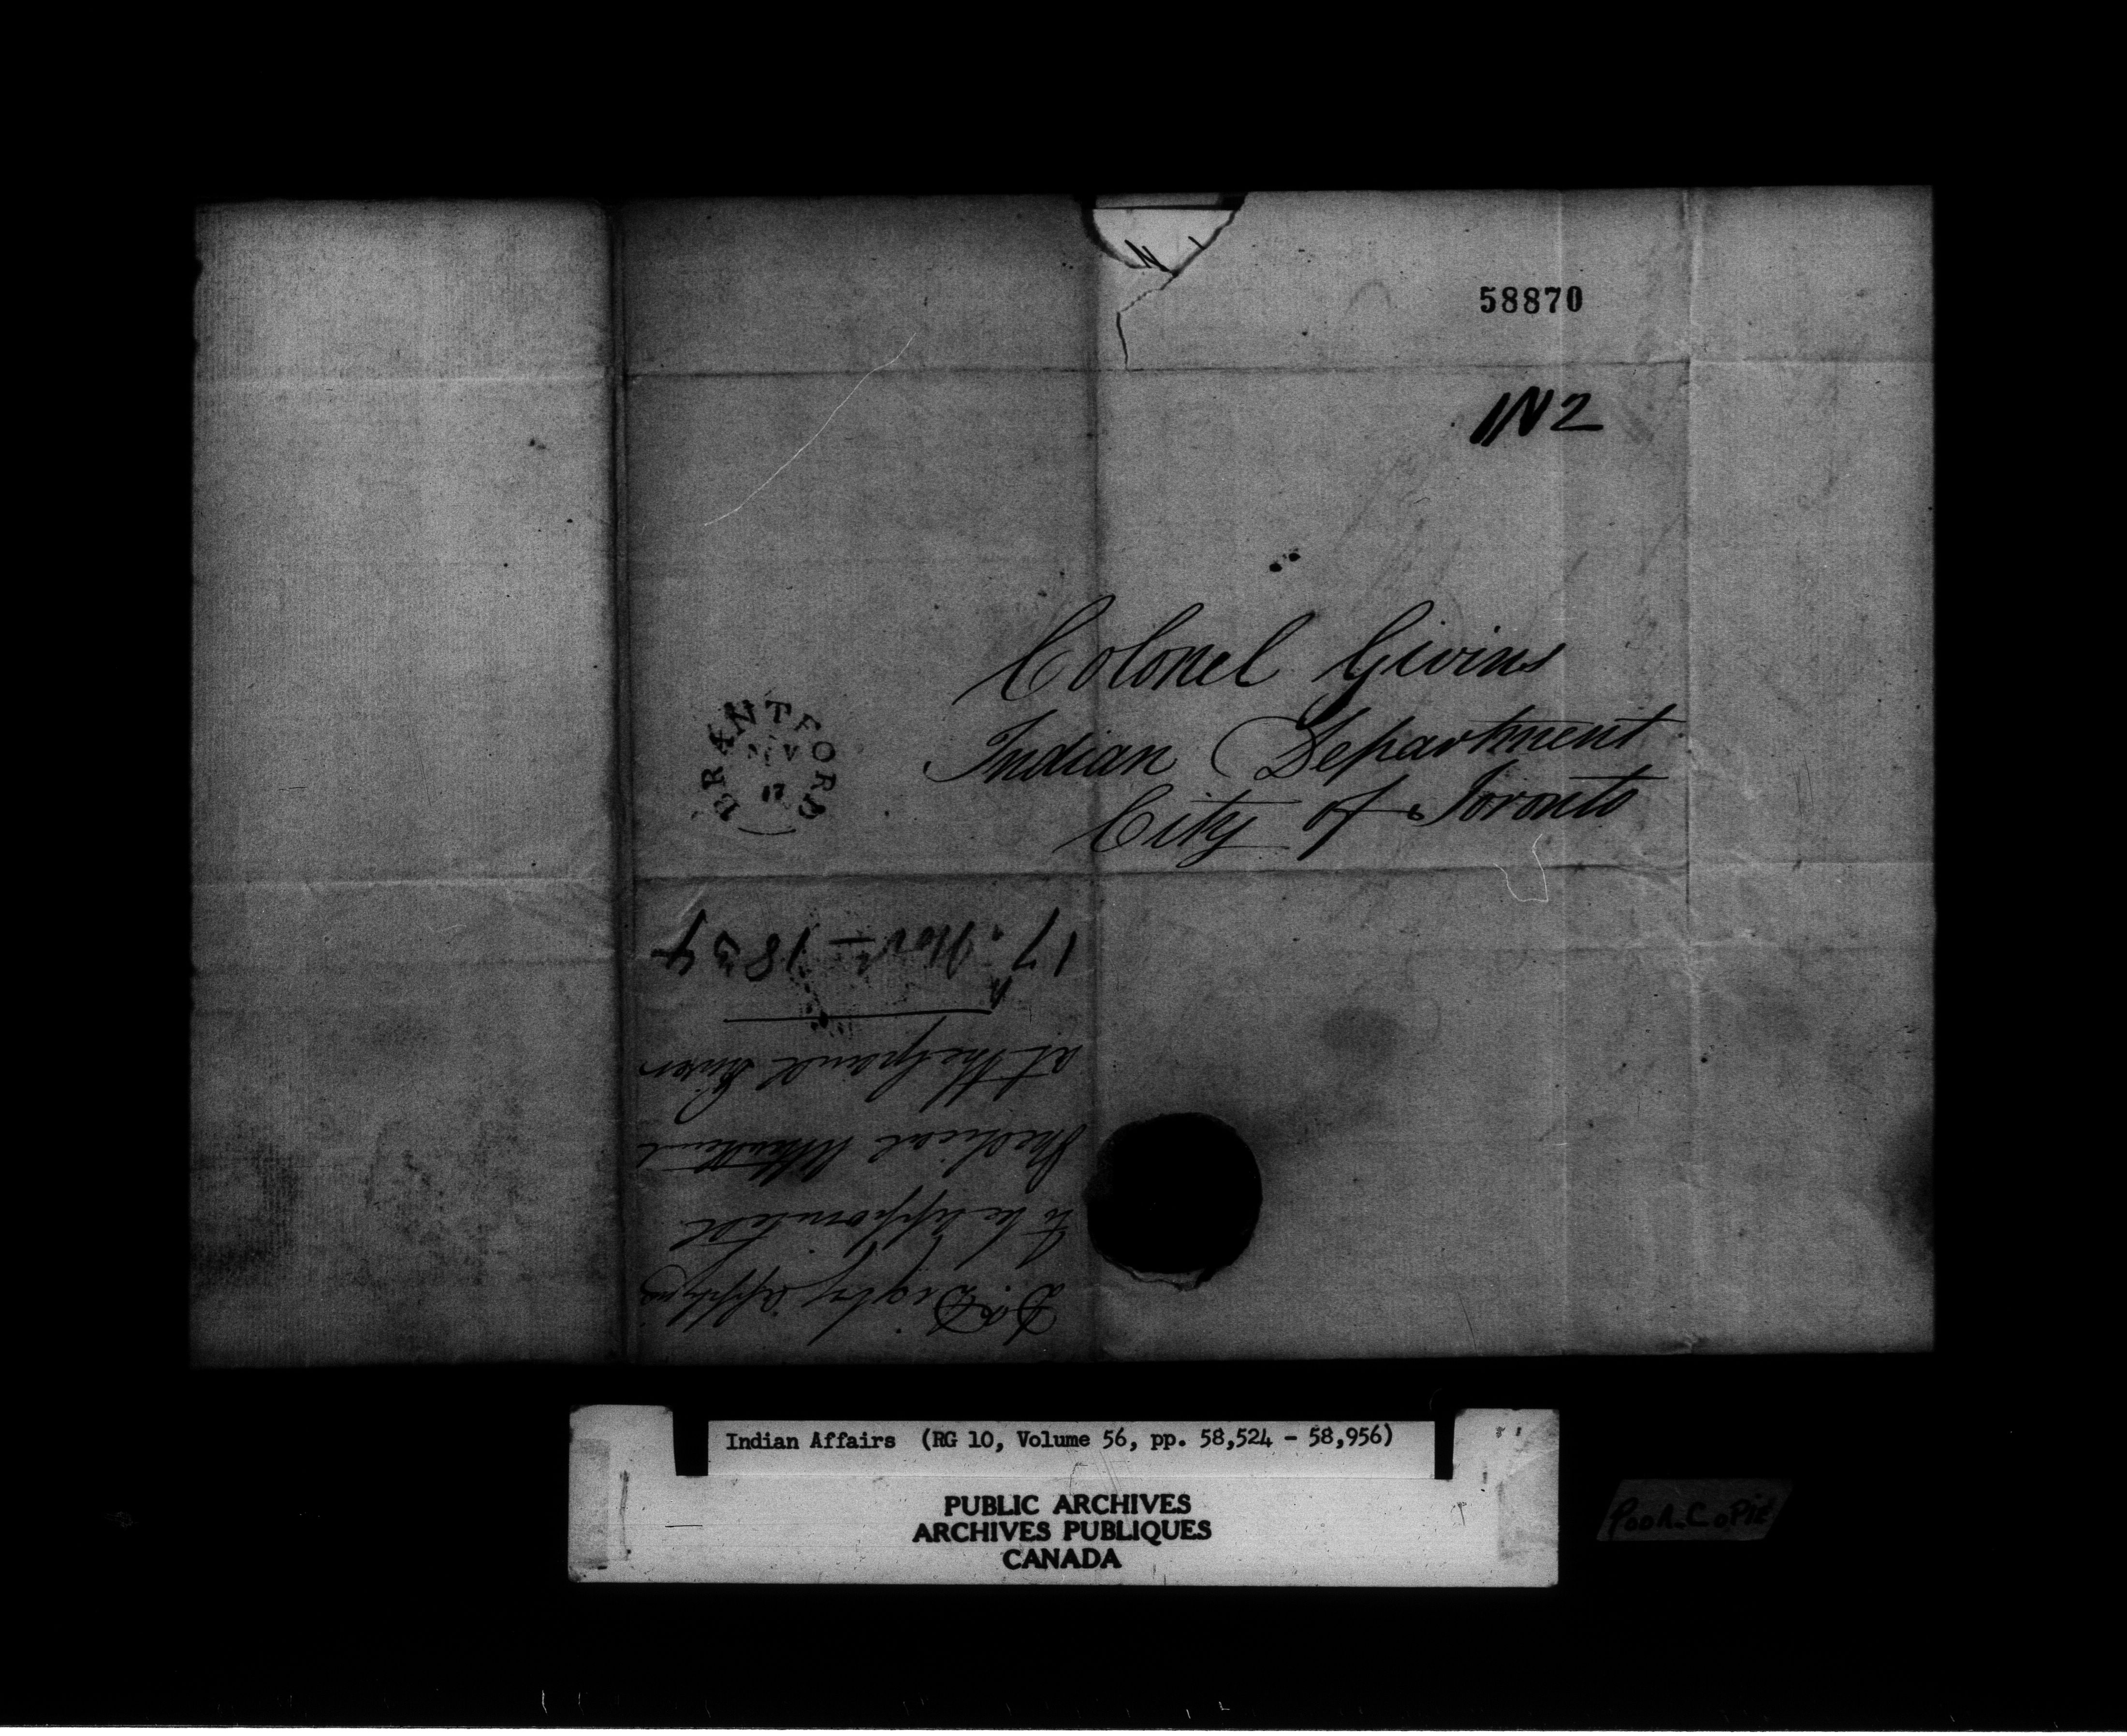 58870
1N2
Colonel Givins
Indian Department
City of Toronto
BRANTFORD
NV
17
Dr. Digby applying
to be appointed
Medical Attendant
at the Grand River
17. Nov. 1834
Indian Affairs (RG 10, Volume 56, pp. 58,524 - 58,956)
PUBLIC ARCHIVES
ARCHIVES PUBLIQUES
CANADA
Poor Copie